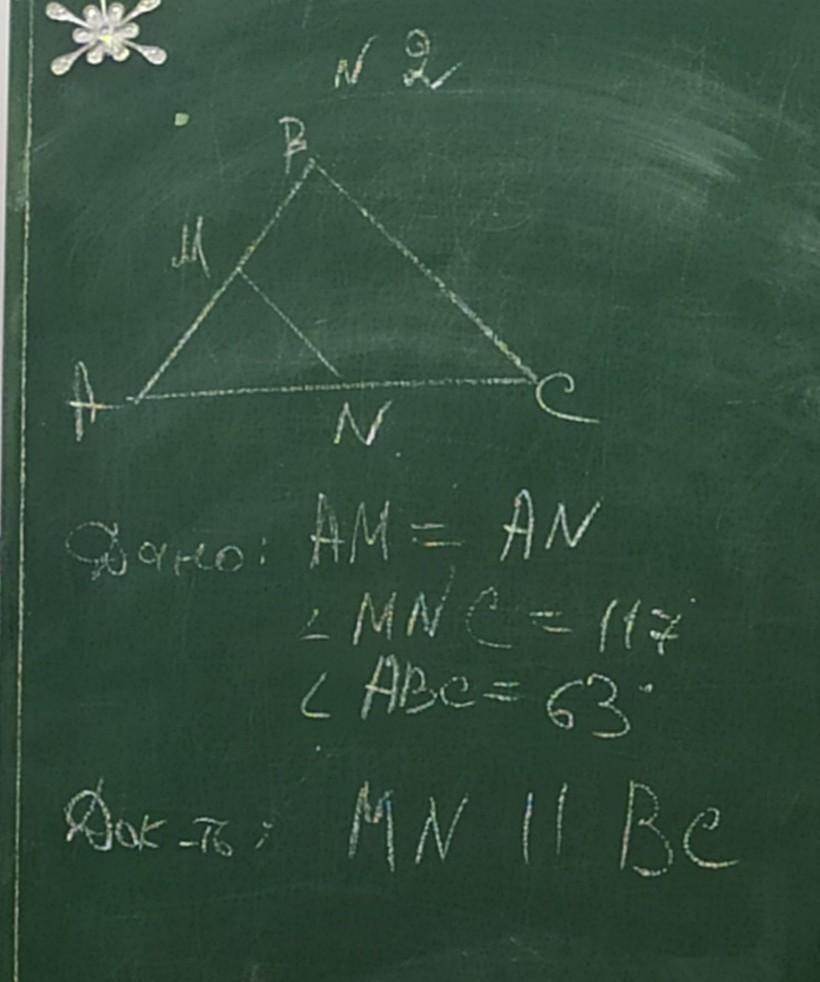 N 2
B
M
A
N
C
Дано: AM = AN
∠ MNC = 117°
∠ ABC = 63°
Док-ть: MN || BC